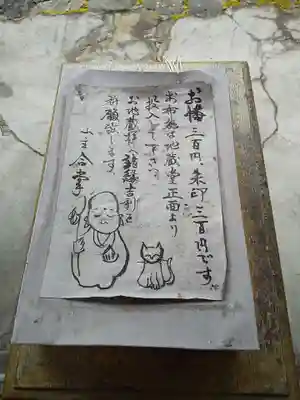 お幡 三百円、朱印 三百円です
お布施は地蔵堂正面より
投入して下さい
お地蔵様へ諸縁吉利を
祈願致します
山主合掌